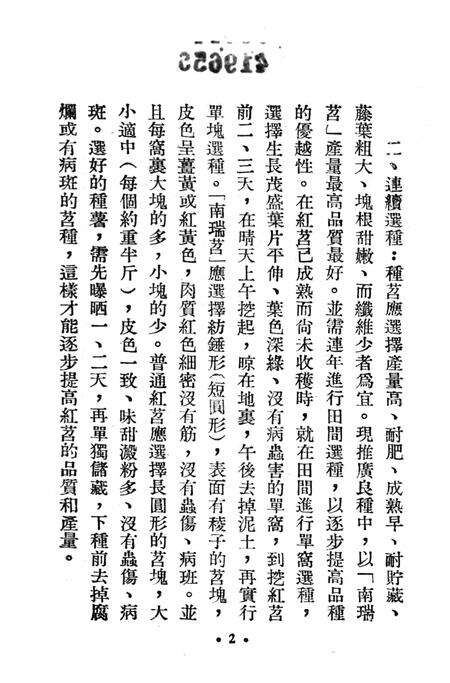 二、連續選種:種苕應選擇產量高、耐肥、成熟早、耐貯藏、
藤葉粗大、塊根甜嫩、而纖維少者爲宜。現推廣良種中,以「南瑞
苕」產量最高品質最好。並需連年進行田間選種,以逐步提高品種
的優越性。在紅苕已成熟而尙未收穫時,就在田間進行單窩選種,
選擇生長茂盛葉片平伸、葉色深綠、沒有病蟲害的單窩,到挖紅苕
前二、三天,在晴天上午挖起,晾在地裏,午後去掉泥土,再實行
單塊選種。「南瑞苕」應選擇紡錘形(短圓形),表面有稜子的苕塊,
皮色呈薑黃或紅黃色,肉質紅色細密沒有筋,沒有蟲傷、病班。並
且每窩裏大塊的多,小塊的少。普通紅苕應選擇長圓形的苕塊,大
小適中(每個約重半斤),皮色一致、味甜澱粉多、沒有蟲傷、病
斑。選好的種薯,需先曝晒一、二天,再單獨儲藏,下種前去掉腐
爛或有病斑的苕種,這樣才能逐步提高紅苕的品質和產量。
• 2 •